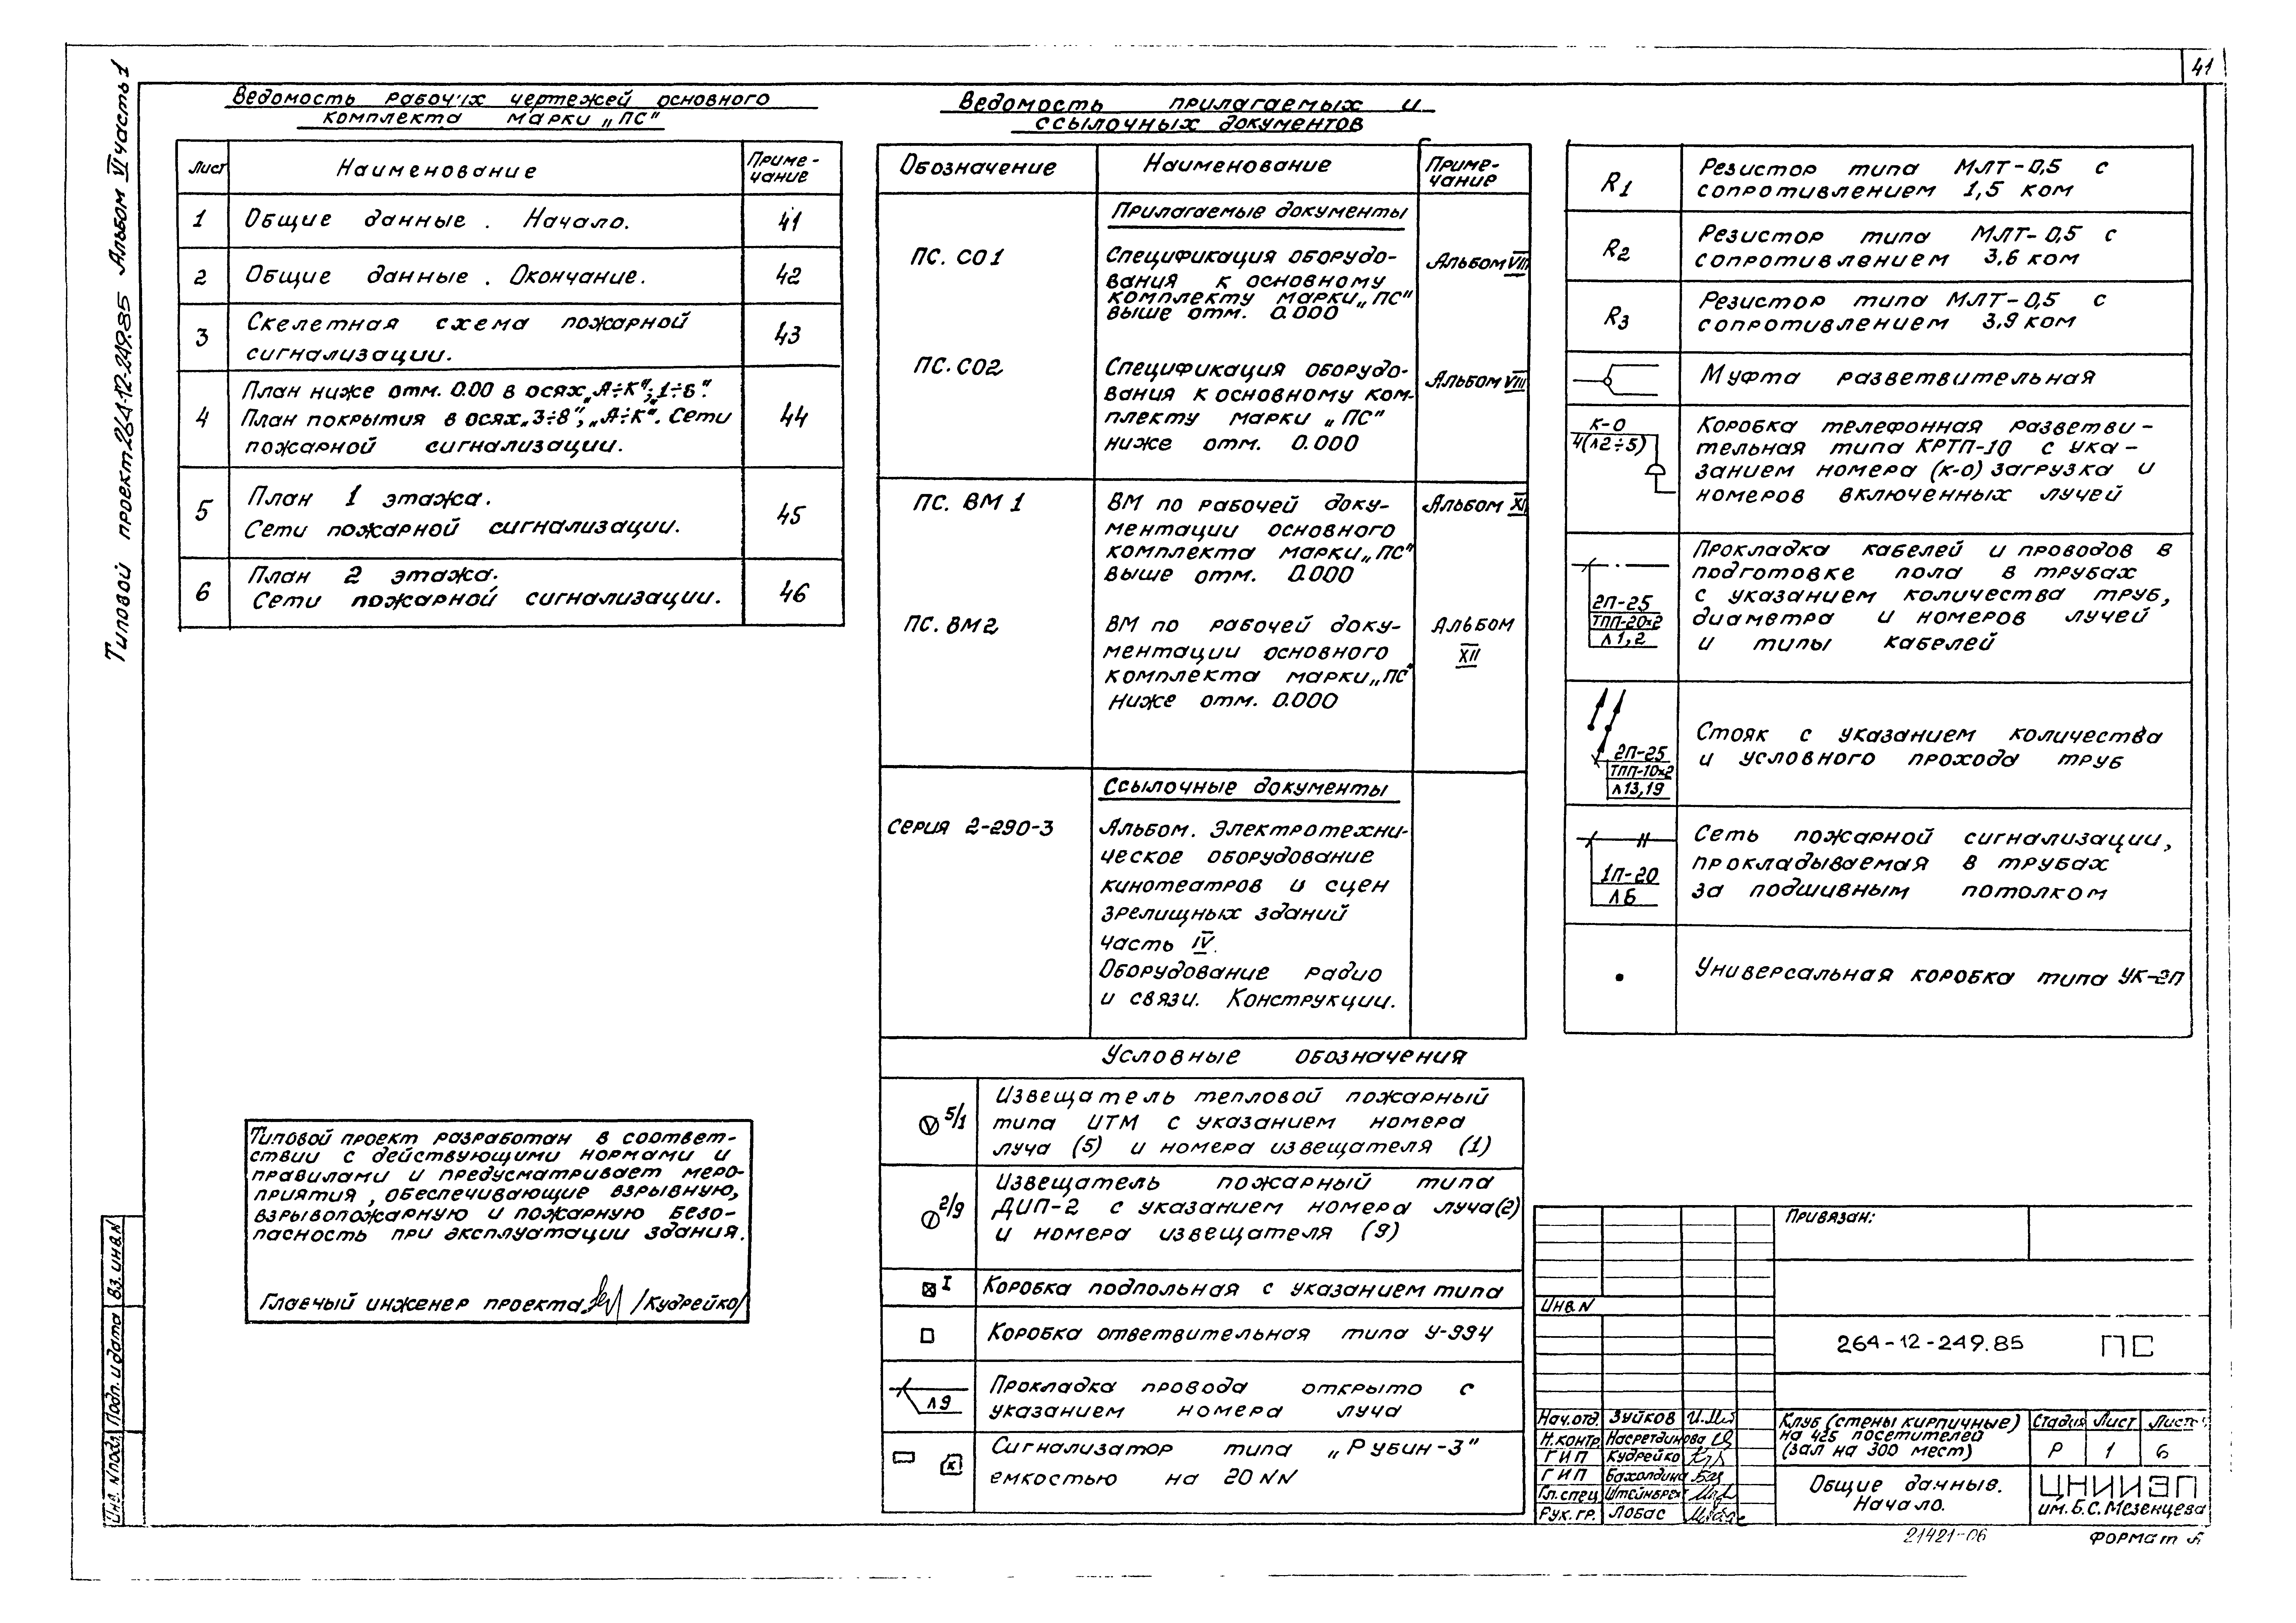 41
Типовой проект 264-12-249.85 Альбом VI часть 1
Ведомость рабочих чертежей основного
комплекта марки „ПС"
Лист Наименование Приме-
чание
1 Общие данные. Начало. 41
2 Общие данные. Окончание. 42
3 Скелетная схема пожарной
сигнализации. 43
4 План ниже отм. 0.00 в осях „А÷К"; „1÷6".
План покрытия в осях „3÷8", „А÷К". Сети
пожарной сигнализации. 44
5 План 1 этажа.
Сети пожарной сигнализации. 45
6 План 2 этажа.
Сети пожарной сигнализации. 46
Типовой проект разработан в соответ-
ствии с действующими нормами и
правилами и предусматривает меро-
приятия, обеспечивающие взрывную,
взрывопожарную и пожарную безо-
пасность при эксплуатации здания.
Главный инженер проекта /Кудрейко/
Ведомость прилагаемых и
ссылочных документов
Обозначение Наименование Приме-
чание
Прилагаемые документы
ПС. СО1 Спецификация оборудо- Альбом VIII
вания к основному
комплекту марки „ПС"
выше отм. 0.000
ПС. СО2 Спецификация оборудо- Альбом VIII
вания к основному ком-
плекту марки „ПС"
ниже отм. 0.000
ПС. ВМ 1 ВМ по рабочей доку- Альбом XI
ментации основного
комплекта марки „ПС"
выше отм. 0.000
ПС. ВМ2 ВМ по рабочей доку- Альбом
ментации основного XII
комплекта марки „ПС"
ниже отм. 0.000
Ссылочные документы
Серия 2-290-3 Альбом. Электротехни-
ческое оборудование
кинотеатров и сцен
зрелищных зданий
часть IV.
Оборудование радио
и связи. Конструкции.
Условные обозначения
5/1 Извещатель тепловой пожарный
типа ИТМ с указанием номера
луча (5) и номера извещателя (1)
2/9 Извещатель пожарный типа
ДИП-2 с указанием номера луча (2)
и номера извещателя (9)
I Коробка подпольная с указанием типа
Коробка ответвительная типа У-994
Л9 Прокладка провода открыто с
указанием номера луча
К Сигнализатор типа „Рубин-3"
емкостью на 20 NN
R1 Резистор типа МЛТ-0,5 с
сопротивлением 1,5 ком
R2 Резистор типа МЛТ-0,5 с
сопротивлением 3,6 ком
R3 Резистор типа МЛТ-0,5 с
сопротивлением 3,9 ком
Муфта разветвительная
К-0
4(Л2÷5)
Коробка телефонная разветви-
тельная типа КРТП-10 с ука-
занием номера (к-0) загрузка и
номеров включенных лучей
2П-25
ТПП-20×2
Л1,2
Прокладка кабелей и проводов в
подготовке пола в трубах
с указанием количества труб,
диаметра и номеров лучей
и типы кабелей
2П-25
ТПП-10×2
Л13,19
Стояк с указанием количества
и условного прохода труб
1П-20
Л6
Сеть пожарной сигнализации,
прокладываемая в трубах
за подшивным потолком
Универсальная коробка типа УК-2П
Привязан:
Инв. N
264-12-249.85 ПС
Нач.отд. Зуйков
Н.контр. Насретдинова
ГИП Кудрейко
ГИП Бахолдина
Гл.спец. Штейнбрех
Рук.гр. Лобас
Клуб (стены кирпичные)
на 425 посетителей
(зал на 300 мест)
Стадия Лист Листов
Р 1 6
Общие данные.
Начало.
ЦНИИЭП
им. Б.С. Мезенцева
21421-06
Формат А
Инв. N подл. Подп. и дата Вз. инв. N